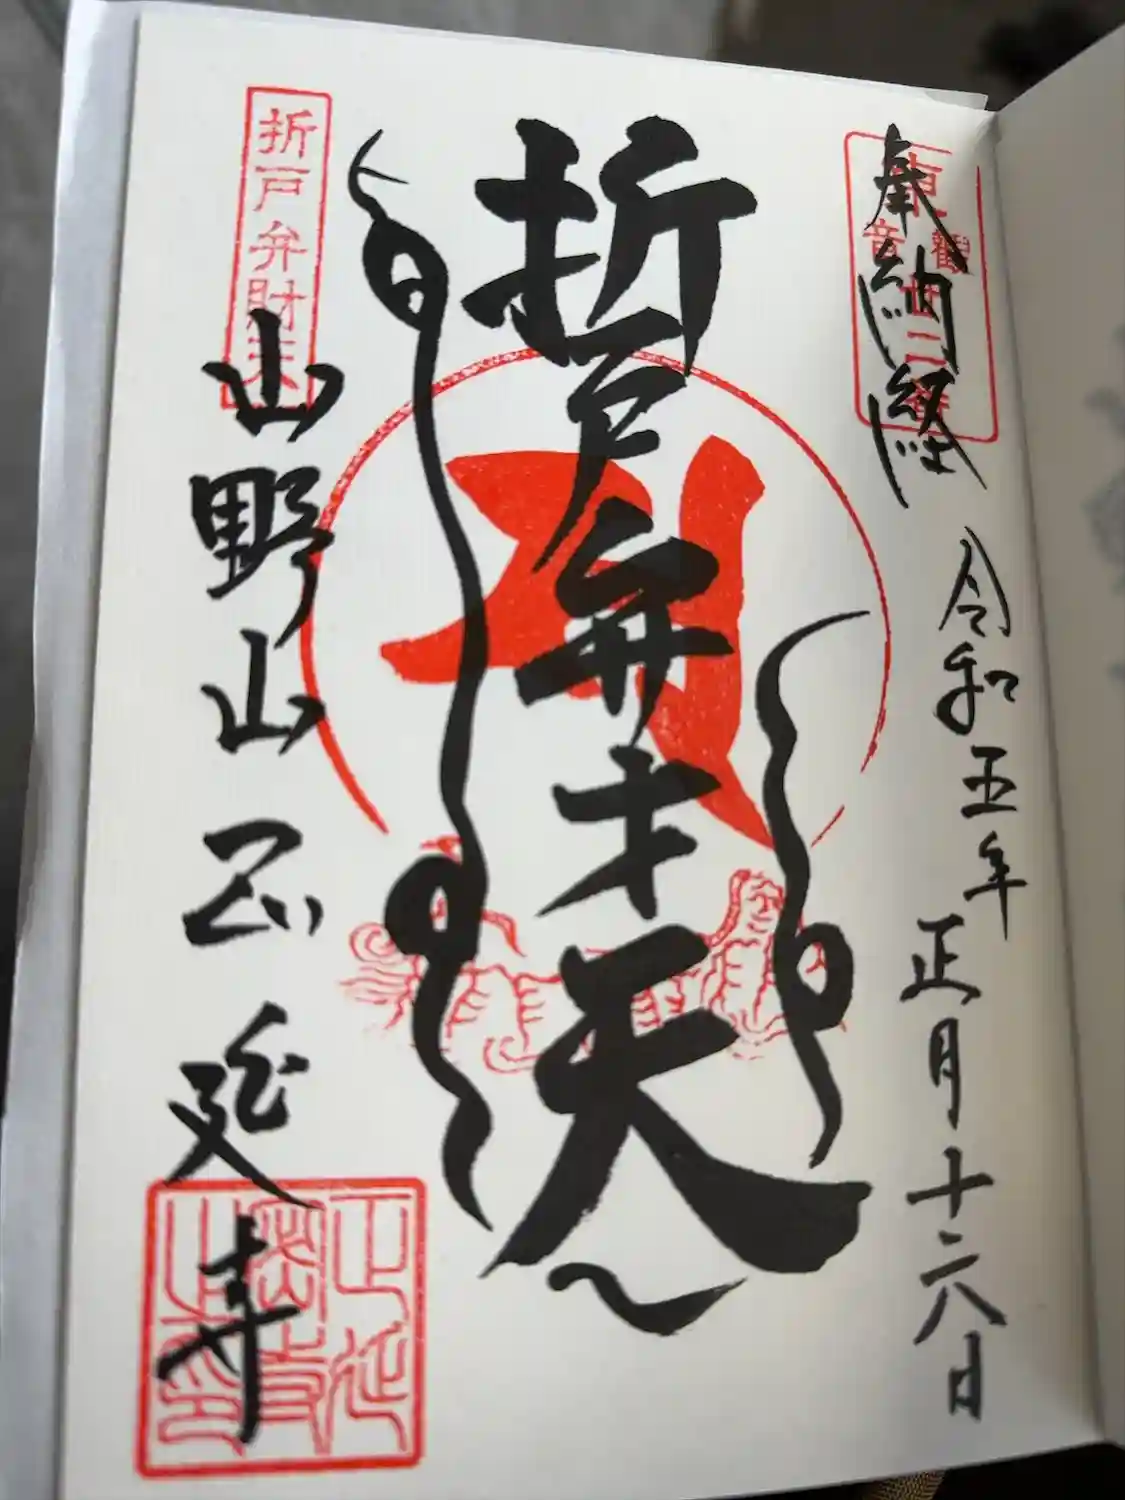 奉納経
令和五年
正月十六日
折戸弁才天
折戸弁財天
山野山
正延寺